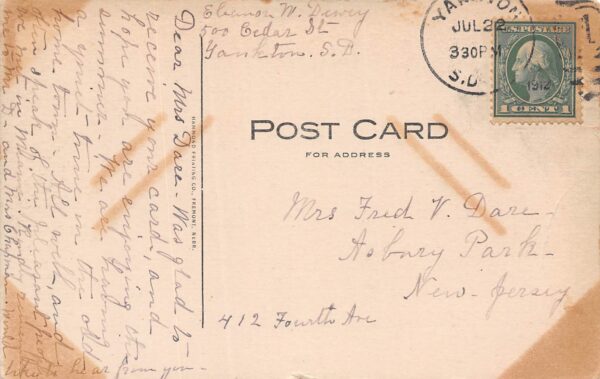 Eleanor M. Dewey
500 Cedar St
Yankton. S.D.
YANKTON
JUL 22
330 PM
1912
S.D.
1 CENT 1
POST CARD
FOR ADDRESS
HAMMOND PRINTING CO., FREMONT, NEBR.
Mrs Fred V. Dare-
Asbury Park-
New-Jersey
412 Fourth Ave
Dear Mrs Dare- Was glad to
receive your card, and
hope you are enjoying the
summer. We are having
a quiet time in the old
home town. All well, and
often speak of the pleasant people
we met in
to Mr. D- and Mrs Chapman- Would
like to hear from you-